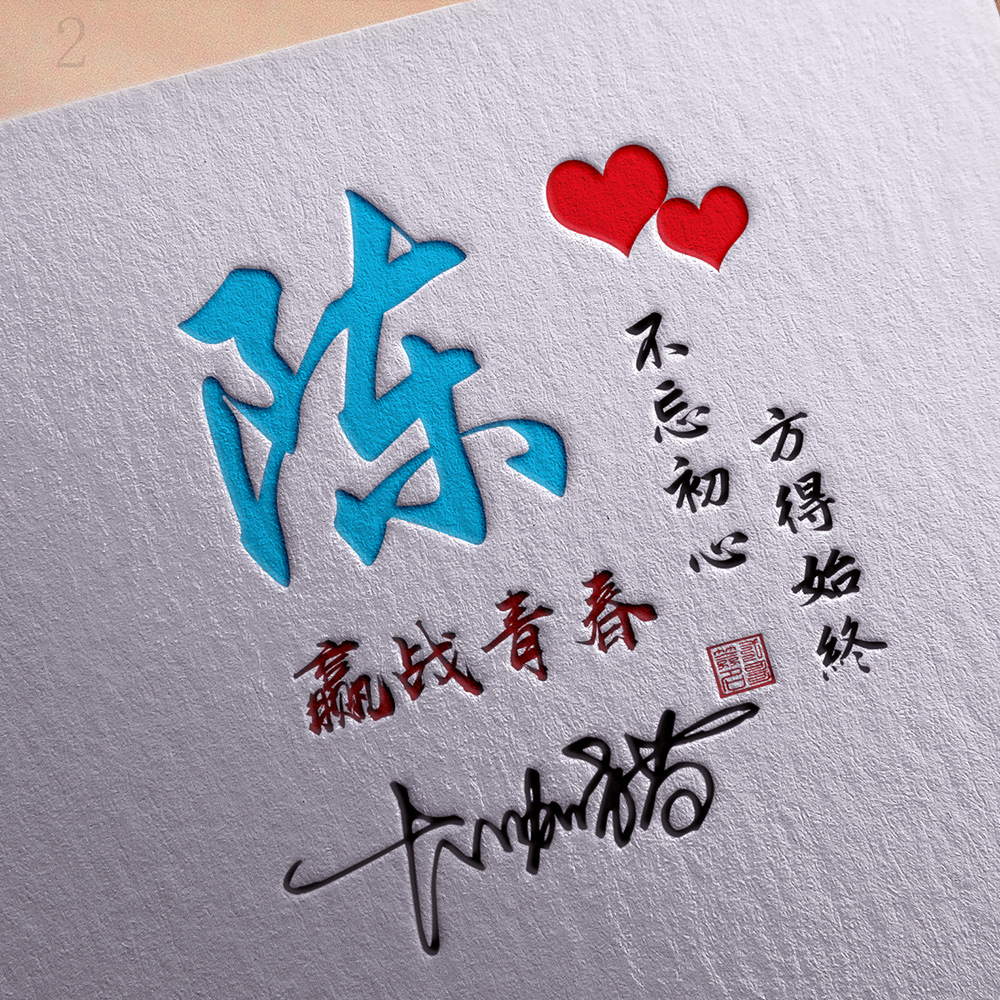 2
陈
不忘初心
方得始终
赢战青春